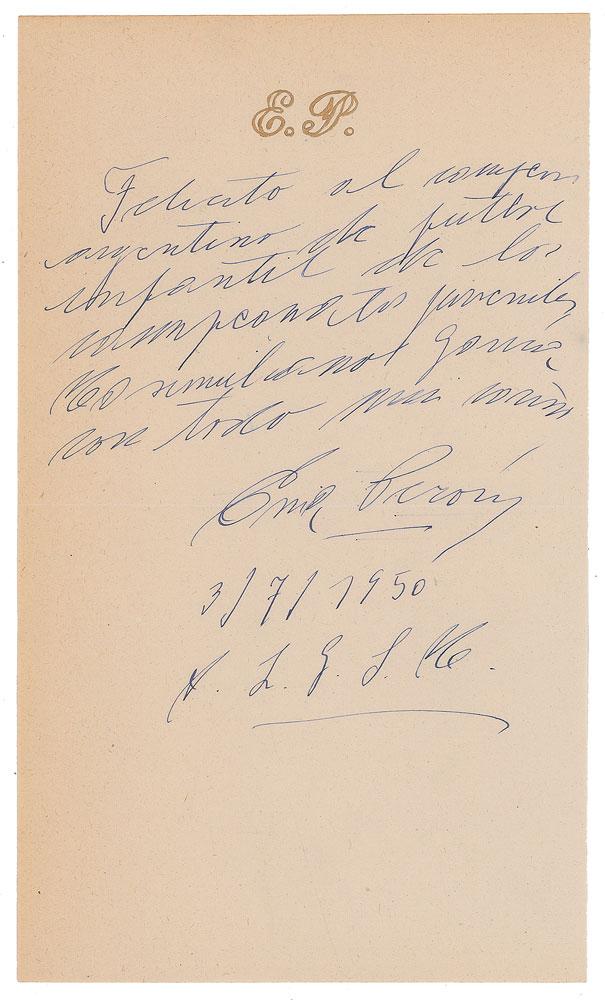 E. P.
Felicito al campeon
argentino de futbol
infantil de los
campeonatos juveniles
García
con todo mi cariño
Eva Perón
3/7/1950
A. L. G. S. M.